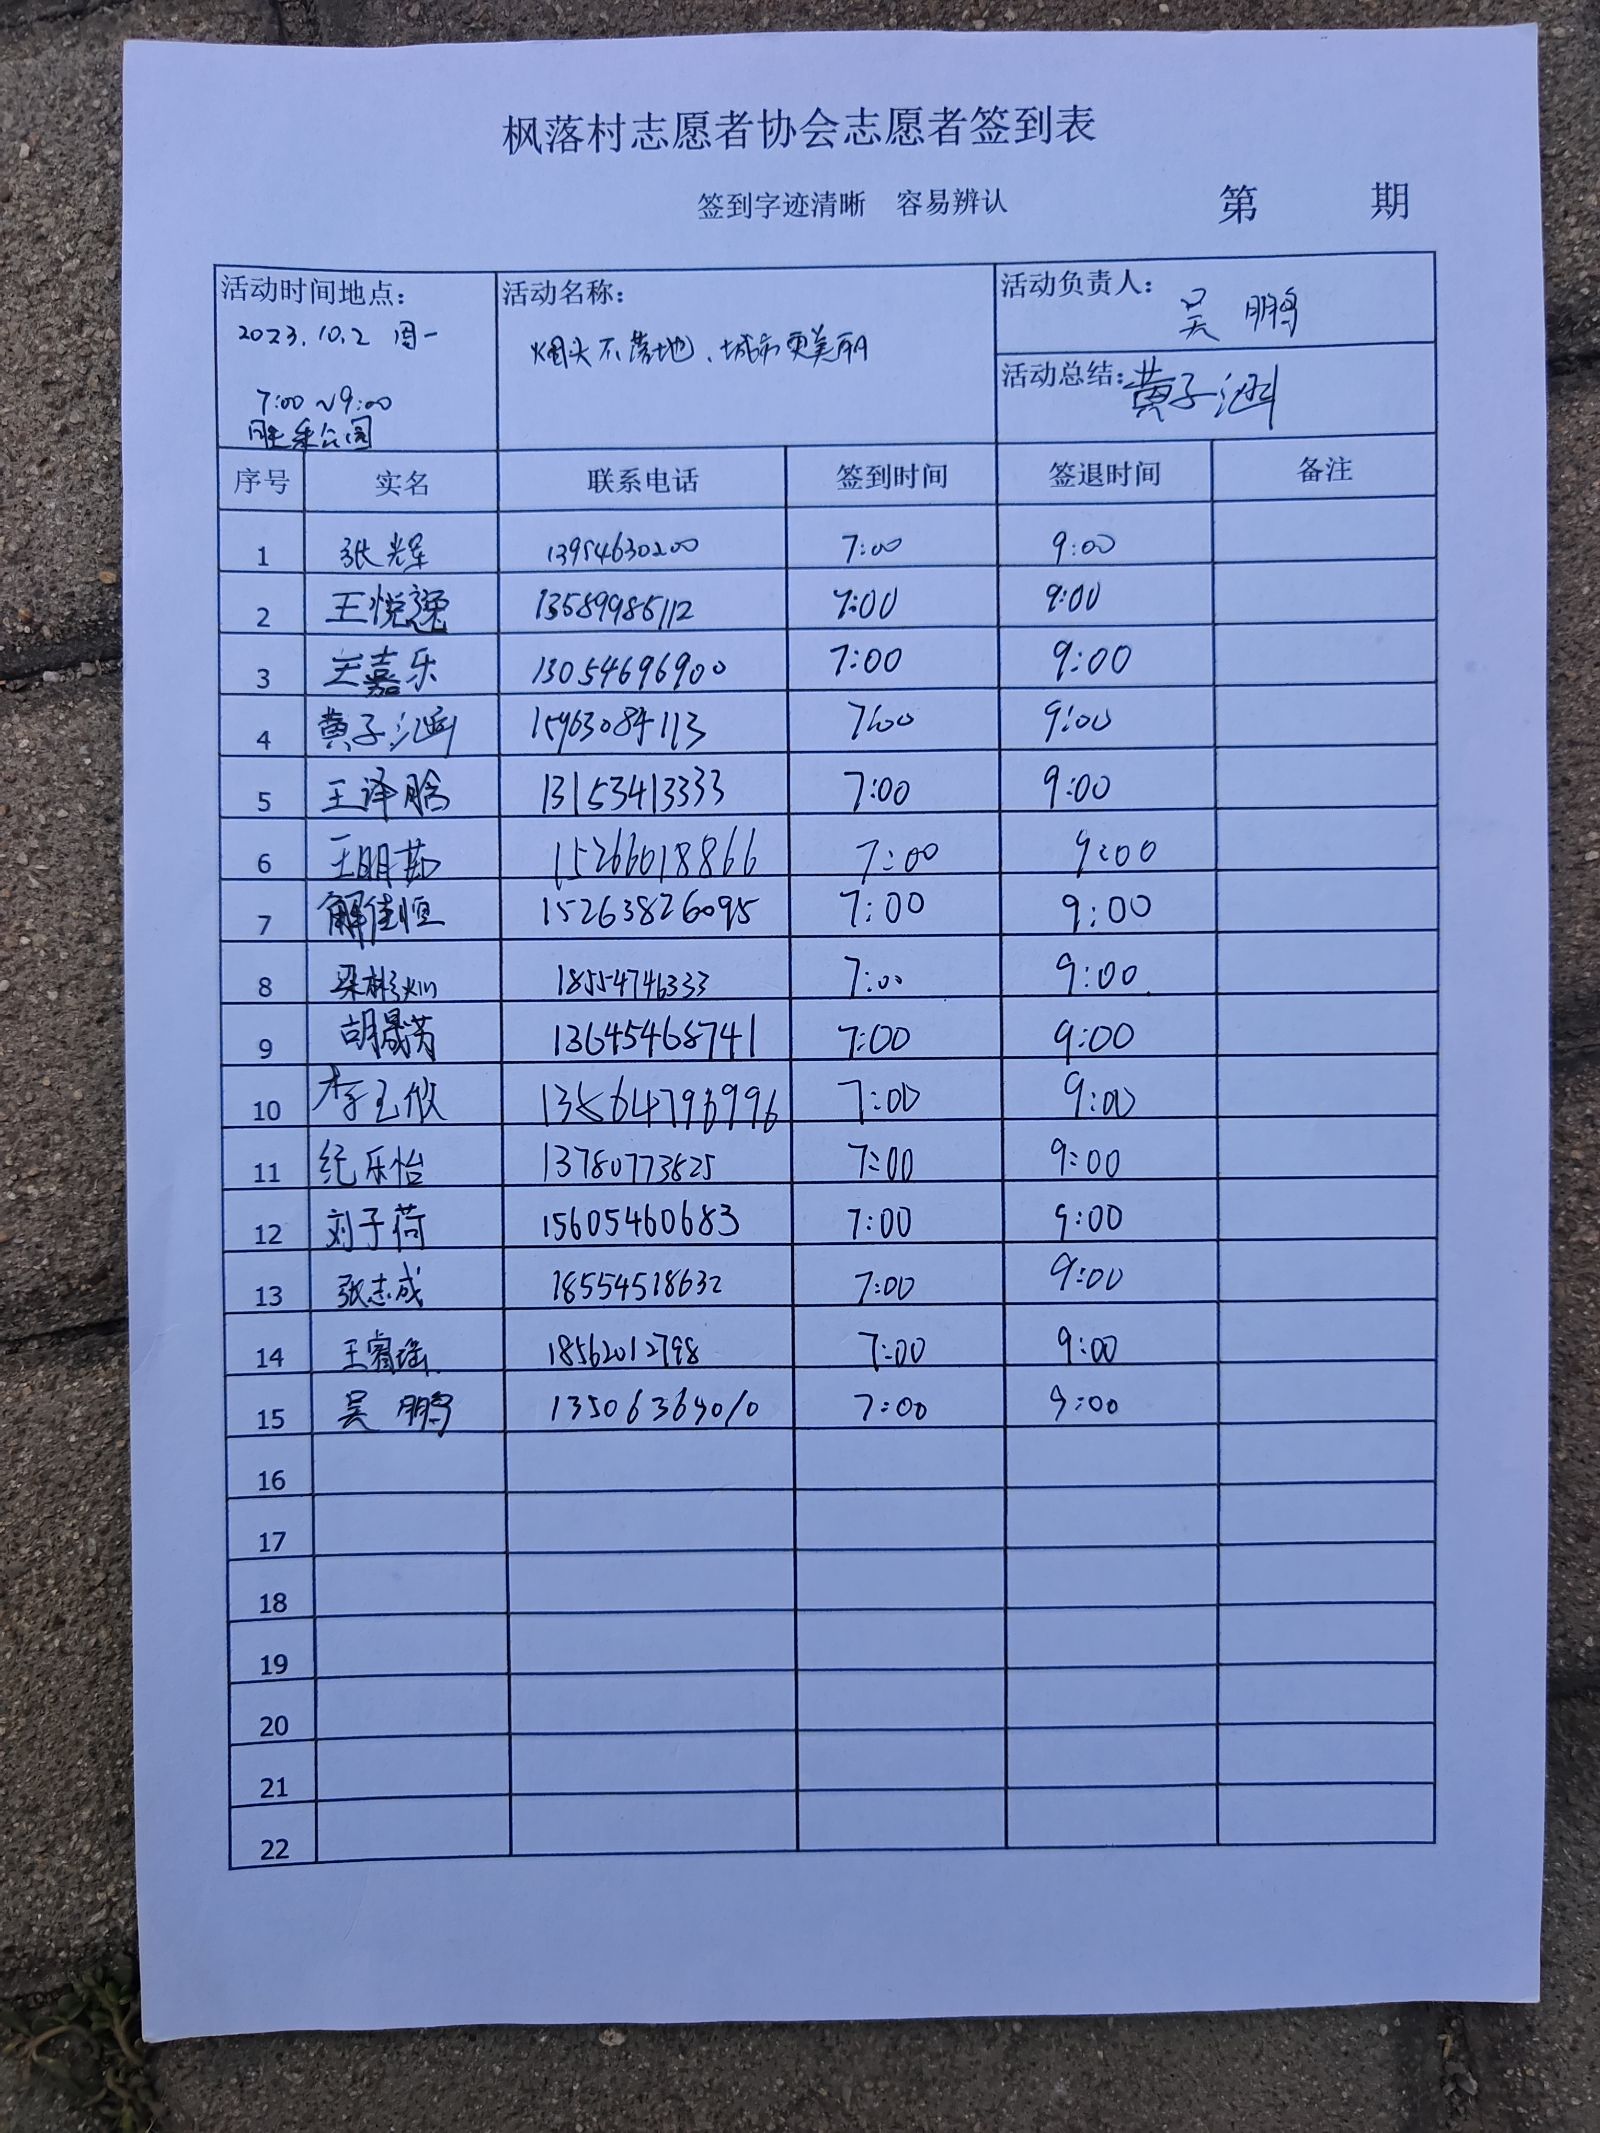 枫落村志愿者协会志愿者签到表
签到字迹清晰 容易辨认 第 期
活动时间地点：
2023.10.2 周一
7:00～9:00
胜采公园
活动名称：
烟头不落地、城市更美丽
活动负责人：
吴鹏
活动总结：黄子涵
序号 实名 联系电话 签到时间 签退时间 备注
1 张辉 13954630200 7:00 9:00
2 王悦 13589985112 7:00 9:00
3 王嘉乐 13054696900 7:00 9:00
4 黄子涵 15963084113 7:00 9:00
5 王泽晗 13153413333 7:00 9:00
6 王明茹 15266018866 7:00 9:00
7 解佳恒 15263826095 7:00 9:00
8 梁彬灿 18554746333 7:00 9:00
9 胡晟芳 13645468741 7:00 9:00
10 李玉攸 7:00 9:00
11 纪乐怡 13780773825 7:00 9:00
12 刘子荷 15605460683 7:00 9:00
13 张志成 18554518632 7:00 9:00
14 王睿瑶 18562012798 7:00 9:00
15 吴鹏 13506364010 7:00 9:00
16
17
18
19
20
21
22